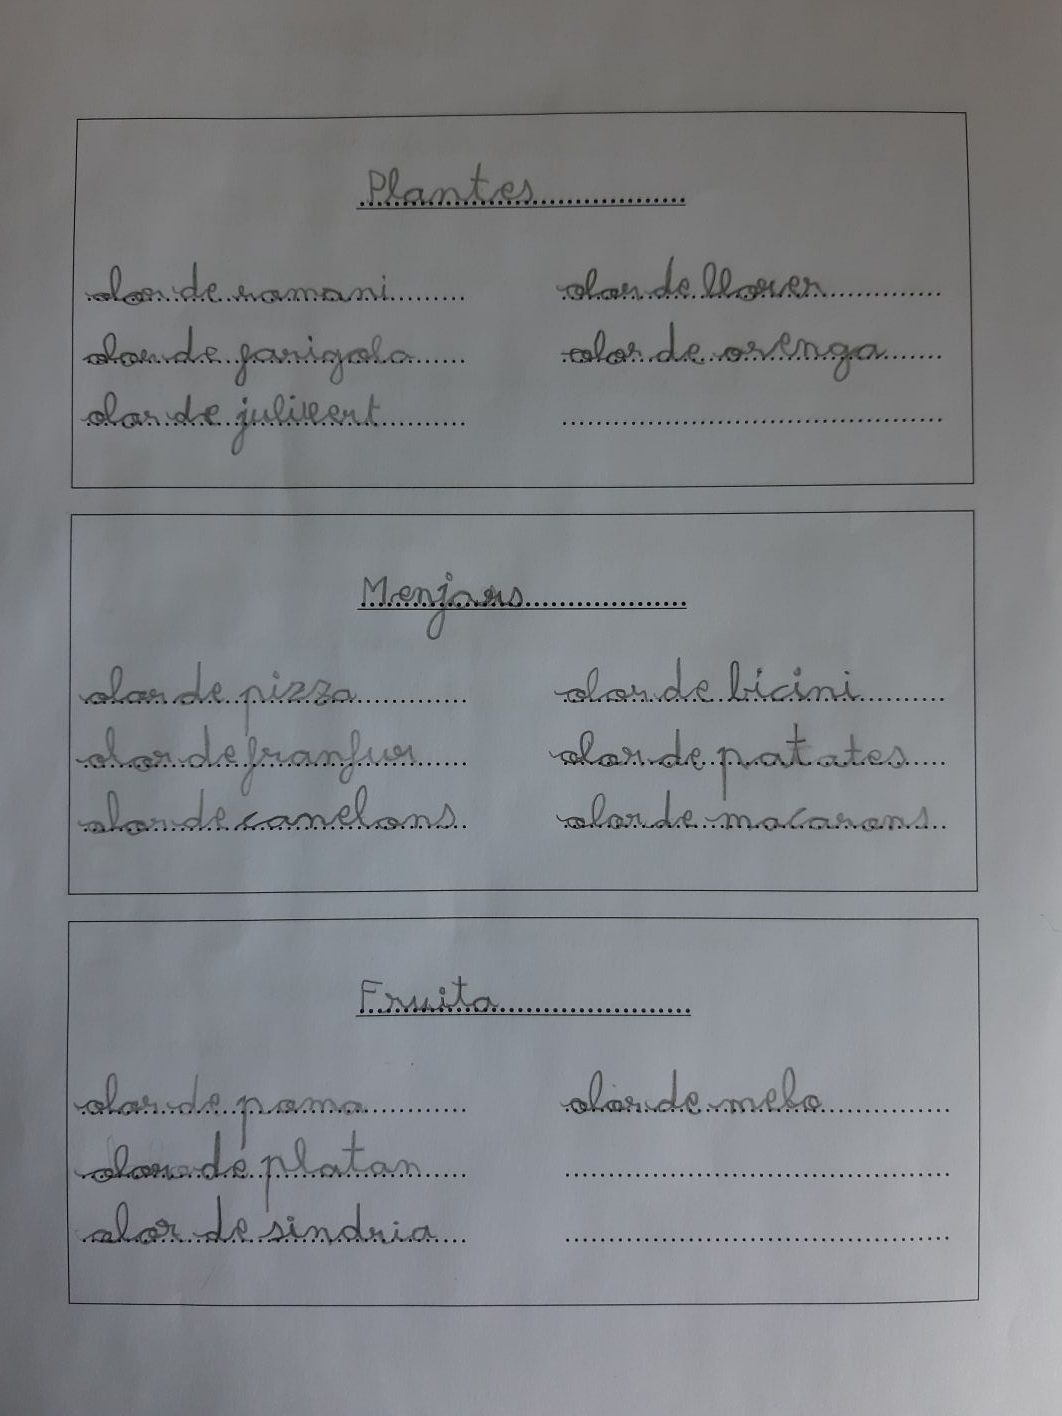 Plantes
olor de romaní
olor de farigola
olor de julivert
olor de llorer
olor de orenga
Menjars
olor de pizza
olor de franfur
olor de canelons
olor de bicini
olor de patates
olor de macarons
Fruita
olor de poma
olor de platan
olor de sindria
olor de melo